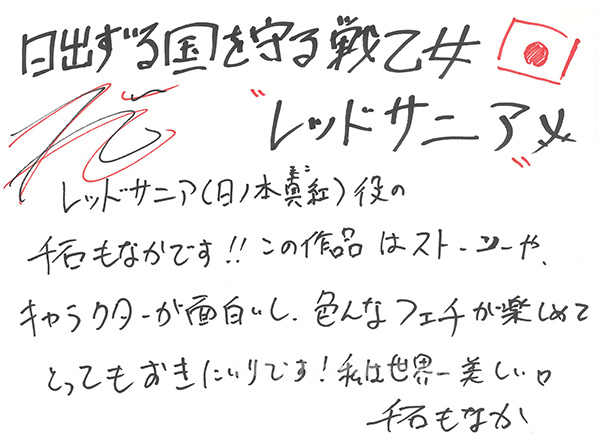 日出ずる国を守る戦乙女
"レッドサニア"〆
レッドサニア(日ノ本真紅)役の
マコ
千石もなかです!!この作品はストーリーや、
キャラクターが面白いし、色んなフェチが楽しめて
とってもおきにいりです!私は世界一美しい。
千石もなか